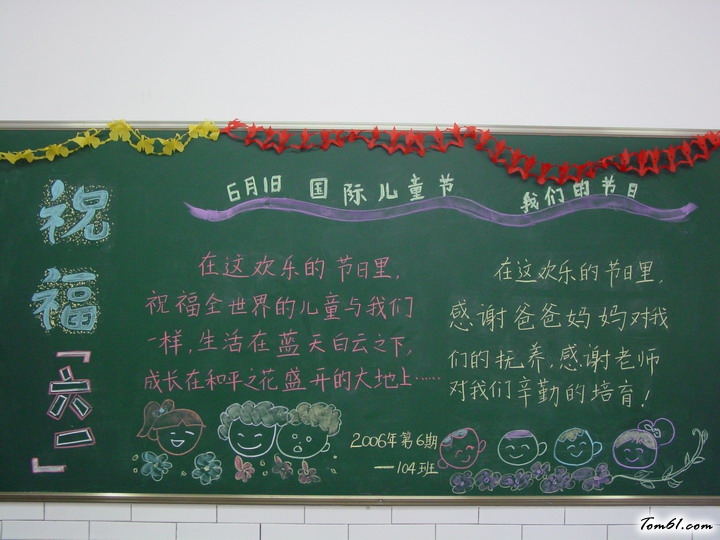 祝福「六一」
6月1日 国际儿童节 我们的节日
在这欢乐的节日里,
祝福全世界的儿童与我们
一样,生活在蓝天白云之下,
成长在和平之花盛开的大地上……
在这欢乐的节日里,
感谢爸爸妈妈对我
们的抚养,感谢老师
对我们辛勤的培育!
2006年第6期
—104班
Tom61.com